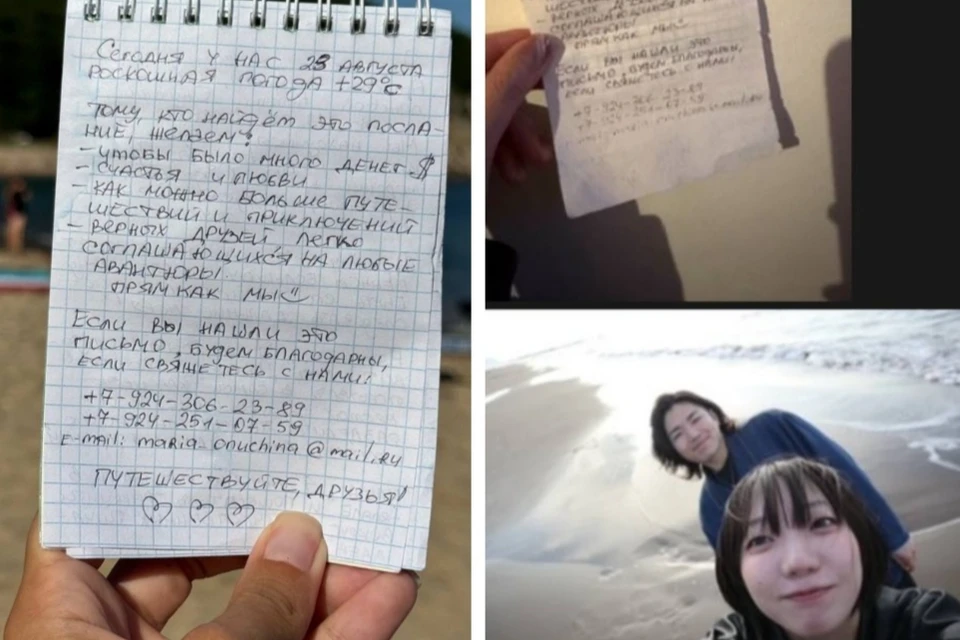 Сегодня у нас 23 августа
роскошная погода +29°C
Тому, кто найдём это посла-
ние, желаем:
- чтобы было много денег $
- счастья и любви
- как можно больше путе-
шествий и приключений
- верных друзей легко
соглашающихся на любые
авантюры.
Прям как мы
Если вы нашли это
письмо, будем благодарны,
если свяжетесь с нами!
+7-924-306-23-89
+7-924-251-07-59
E-mail: maria-onuchina@mail.ru
Путешествуйте, друзья!
соглашающихся на любые
авантюры.
прям как мы
Если вы нашли это
письмо, будем благодарны,
если свяжетесь с нами!
+7-924-306-23-89